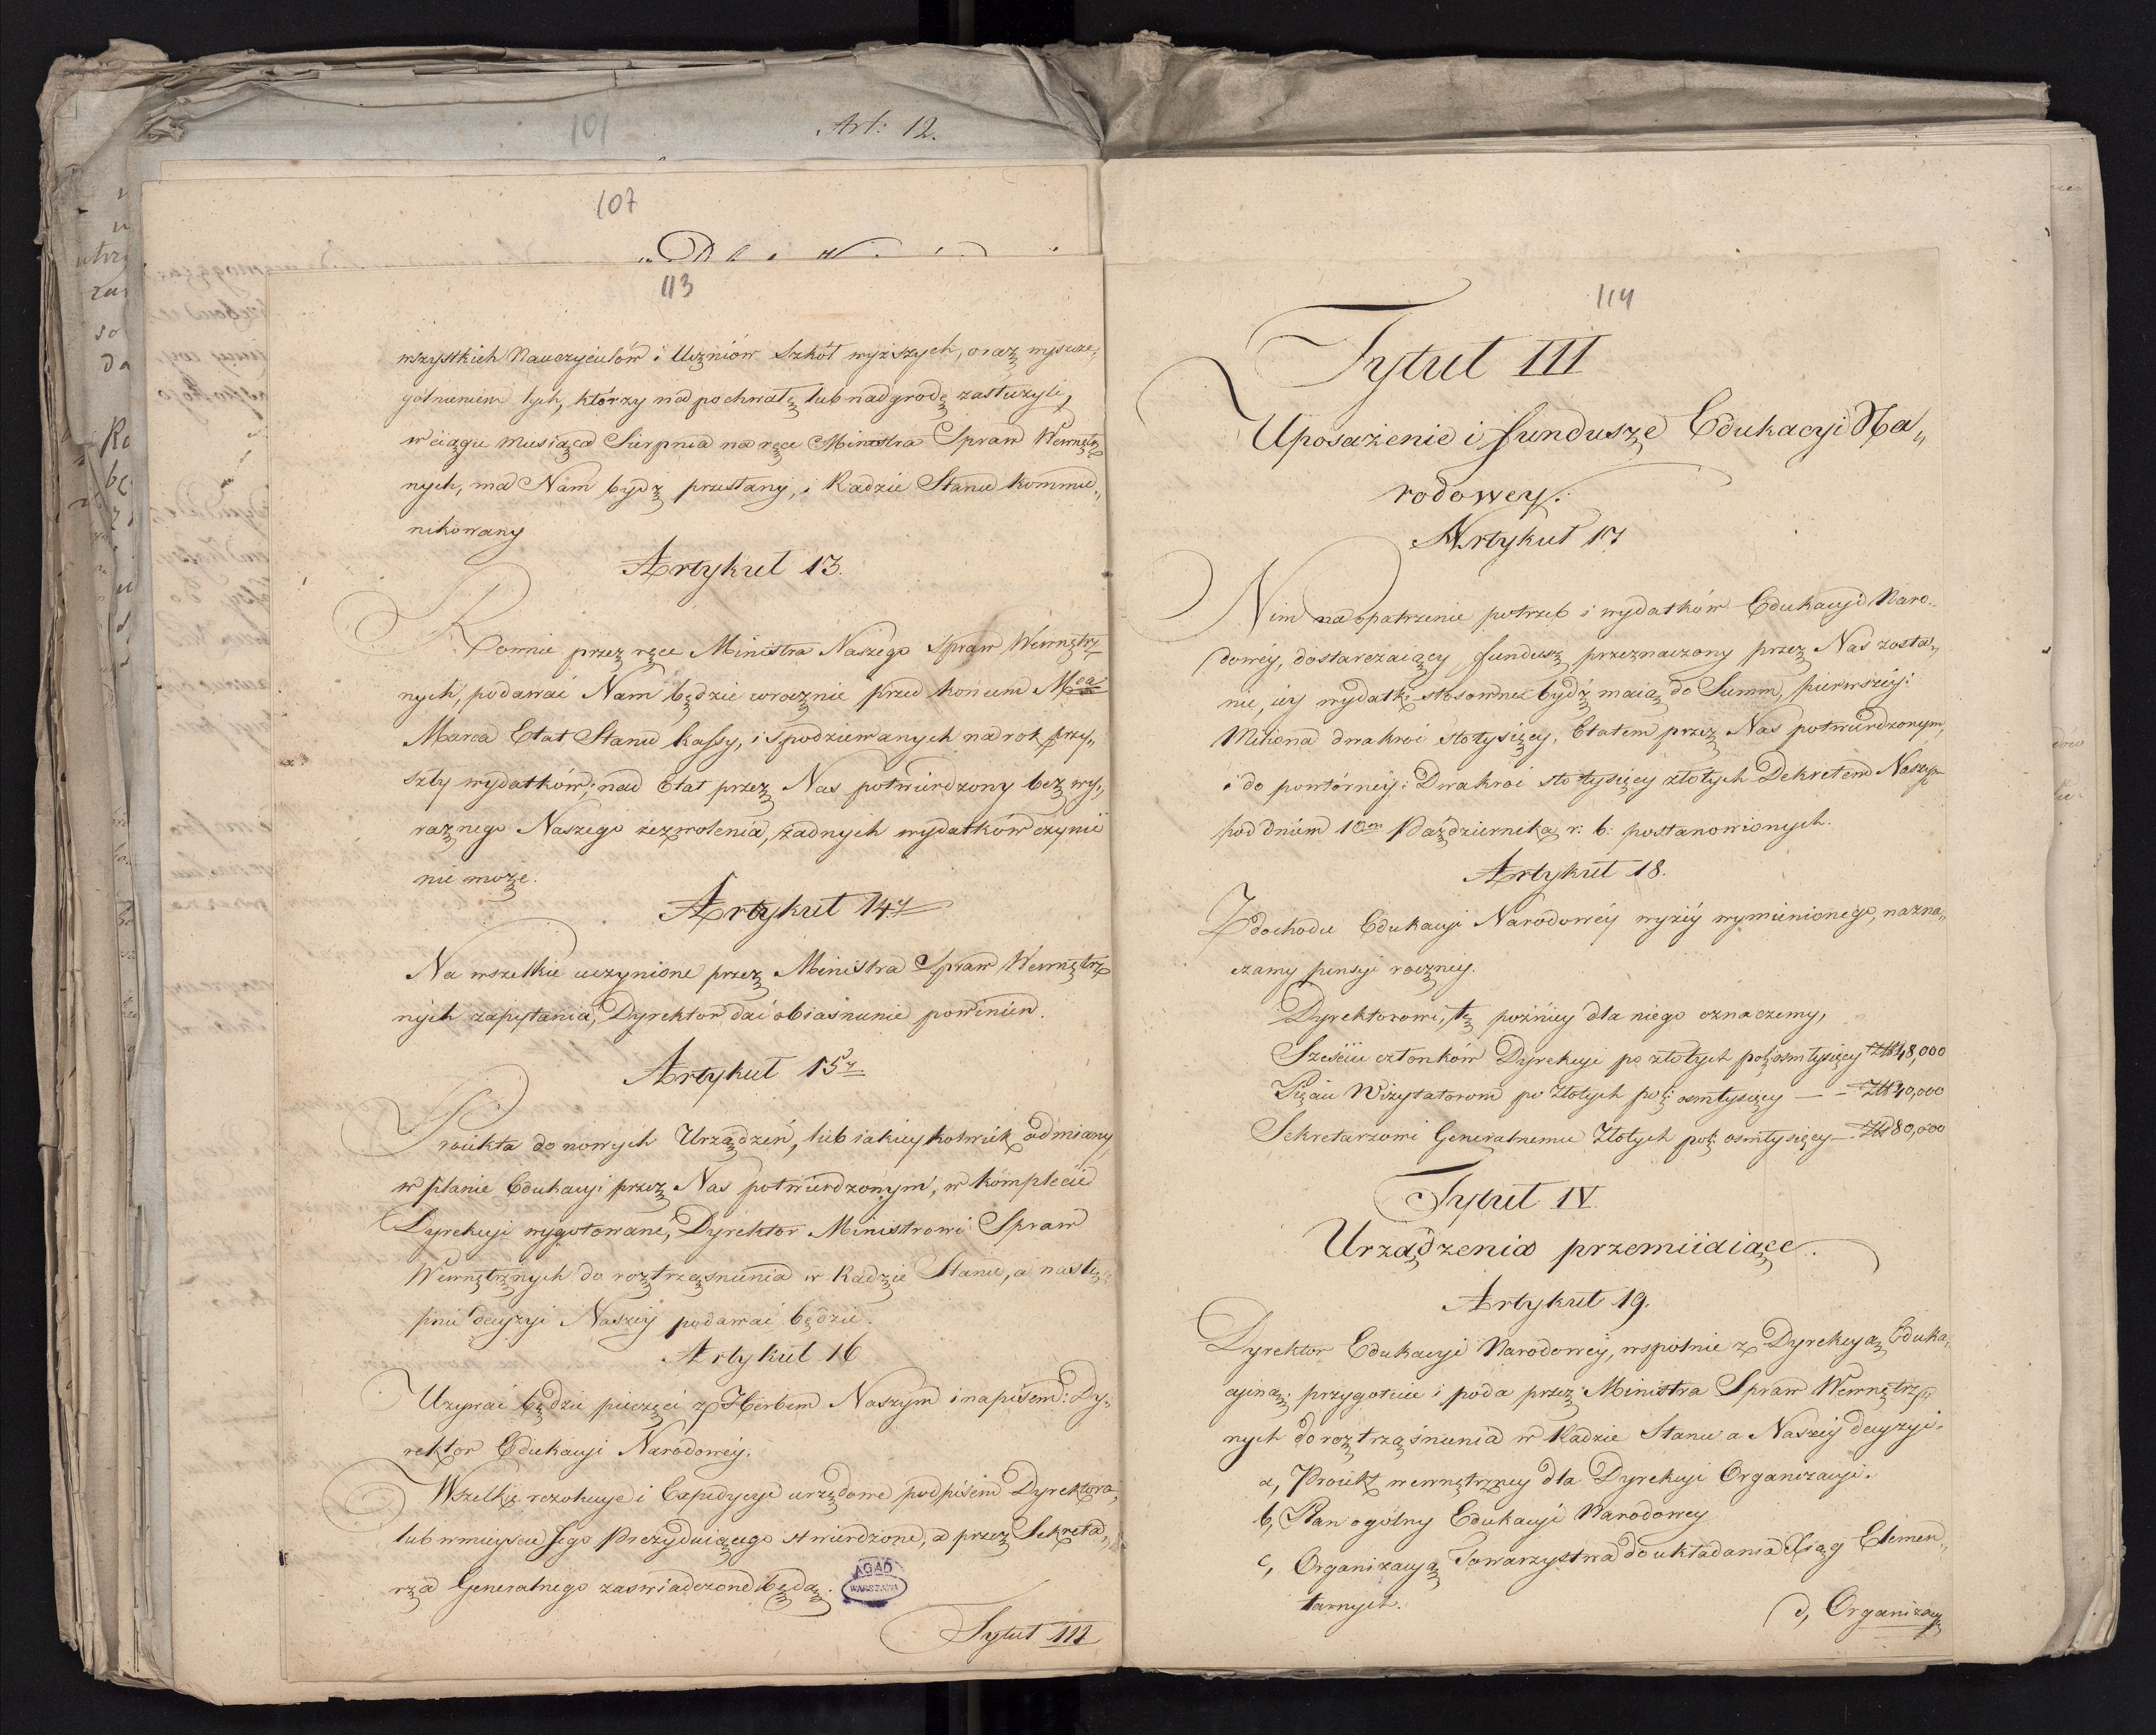 101
Art: 12.
107
113
wszystkich Nauczycielów i Uczniów Szkół wyższych, oraz wyszcze„
gólnieniem tych, którzy na pochwałę lub nadgrodę zasłużyli,
w ciągu Miesiąca Sierpnia na ręce Ministra Spraw Wewnętrz
nych, ma Nam bydz przesłany, i Radzie Stanu kommu„
nikowany
Artykuł 13.
Rownie przez ręce Ministra Naszego Spraw Wewnętrz„
nych, podawać Nam będzie corocznie przed końcem Mca
Marca Etat Stanu Kassy, i spodziewanych na rok przy„
szły wydatków; nad Etat przez Nas potwierdzony bez wy„
raznego Naszego zezwolenia, żadnych wydatków czynić
nie może.
Artykuł 14ty
Na wszelkie uczynione przez Ministra Spraw Wewnętrz
nych zapytania, Dyrektor dać obiaśnienie powinien.
Artykuł 15ty
Proiekta do nowych Urządzeń, lub iakieykolwiek odmiany,
w planie Edukacyi przez Nas potwierdzonym, w komplecie
Dyrekcyi wygotowane, Dyrektor Ministrowi Spraw
Wewnętrznych do roztrząśnienia w Radzie Stanu, a nastę„
pnie decyzyi Naszey podawać będzie.
Artykuł 16
Używać będzie pieczęci z Herbem Naszym i napisem: Dy„
rektor Edukacyi Narodowey.
Wszelkie rezolucye i Expedycye urzędowe podpisem Dyrektora,
lub w mieyscu Jego Prezyduiącego stwierdzone, a przez Sekreta„
rza Generalnego zaswiadczone będą.
AGAD
WARSZAWA
Tytuł III
114
Tytuł III
Uposażenie i fundusze Edukacyi Na„
rodowey.
Artykuł 17
Nim na opatrzenie potrzeb i wydatków Edukacyi Naro„
dowey, dostarczaiący fundusz przeznaczony przez Nas zosta„
nie, iey wydatki stosowne bydź maią do Summ, pierwszey:
Miliona dwakroć stotysięcy, Etatem przez Nas potwierdzonym,
i do powtórney: Dwakroć stotysięcy złotych Dekretem Naszym
pod dniem 1em Października r: b: postanowionych.
Artykuł 18.
Z dochodu Edukacyi Narodowey wyżey wymienionego, nazna„
czamy pensyi roczney.
Dyrektorowi, tę poźniey dla niego oznaczemy,
Sześciu członków Dyrekcyi po złotych pol: osm tysięcy Zł 48,000
Pięciu Wizytatorom po Złotych pol: osm tysięcy — – Zł 40,000
Sekretarzowi Generalnemu Złotych pol: osm tysięcy — Zł 80,000
Tytuł IV.
Urządzenia przemiiaiące.
Artykuł 19.
Dyrektor Edukacyi Narodowey, wspolnie z Dyrekcyą Eduka„
cyiną, przygotuie i poda przez Ministra Spraw Wewnętrz„
nych do roztrząśnienia w Radzie Stanu a Naszey decyzyi.
a, Proiekt wewnętrzney dla Dyrekcyi Organizacyi.
b, Plan ogólny Edukacyi Narodowey
c, Organizacyą Towarzystwa do układania Xiąg Elemen„
tarnych.
d, Organizacyą